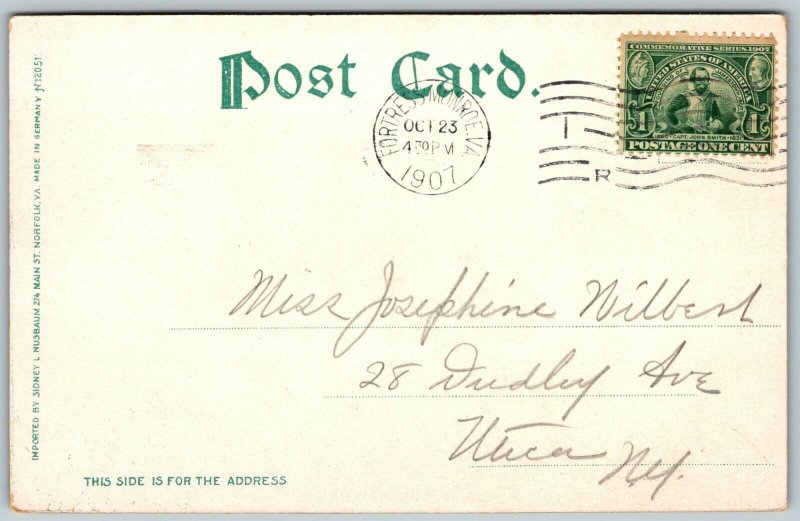 Post Card.
FORTRESS MONROE, VA.
OCT 23
4 30 PM
1907
R
COMMEMORATIVE SERIES 1907
UNITED STATES OF AMERICA
1 1
1580 · CAPT. JOHN SMITH · 1631
POSTAGE ONE CENT
Miss Josephine Wilbert
28 Dudley Ave
Utica
N.Y.
THIS SIDE IS FOR THE ADDRESS
IMPORTED BY SIDNEY L. NUSBAUM 274 MAIN ST. NORFOLK, VA. MADE IN GERMANY N 12051